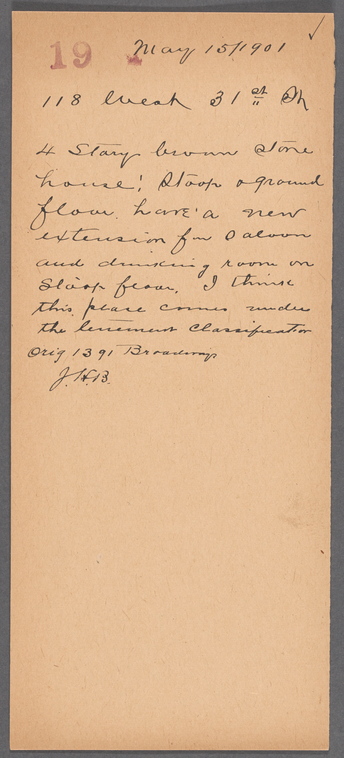 19 1 May 15/1901
118 West 31 st St
4 Story brown Stone
house; Stoop & ground
floor. have a new
extension for Saloon
and drinking room on
Stoop floor. I think
this place comes under
the tenement Classification
Orig 1391 Broadway
J.H.B.